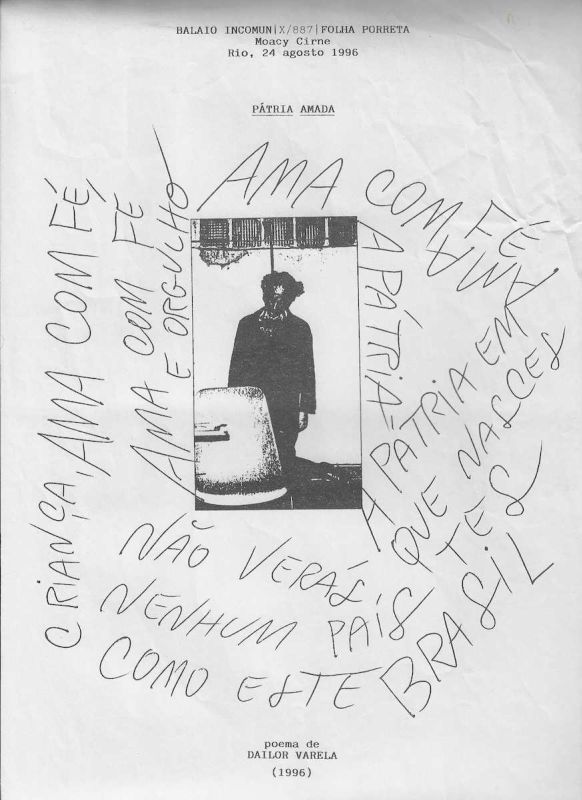 BALAIO INCOMUN|X/887|FOLHA PORRETA
Moacy Cirne
Rio, 24 agosto 1996
PÁTRIA AMADA
CRIANÇA, AMA COM FÉ,
AMA COM FE
E ORGULHO
AMA COM FÉ,
AMA
A PÁTRIA,
A PÁTRIA EM
QUE NASCES
TES
NÃO VERÁS,
NENHUM PAÍS
COMO ESTE BRASIL
poema de
DAILOR VARELA
(1996)